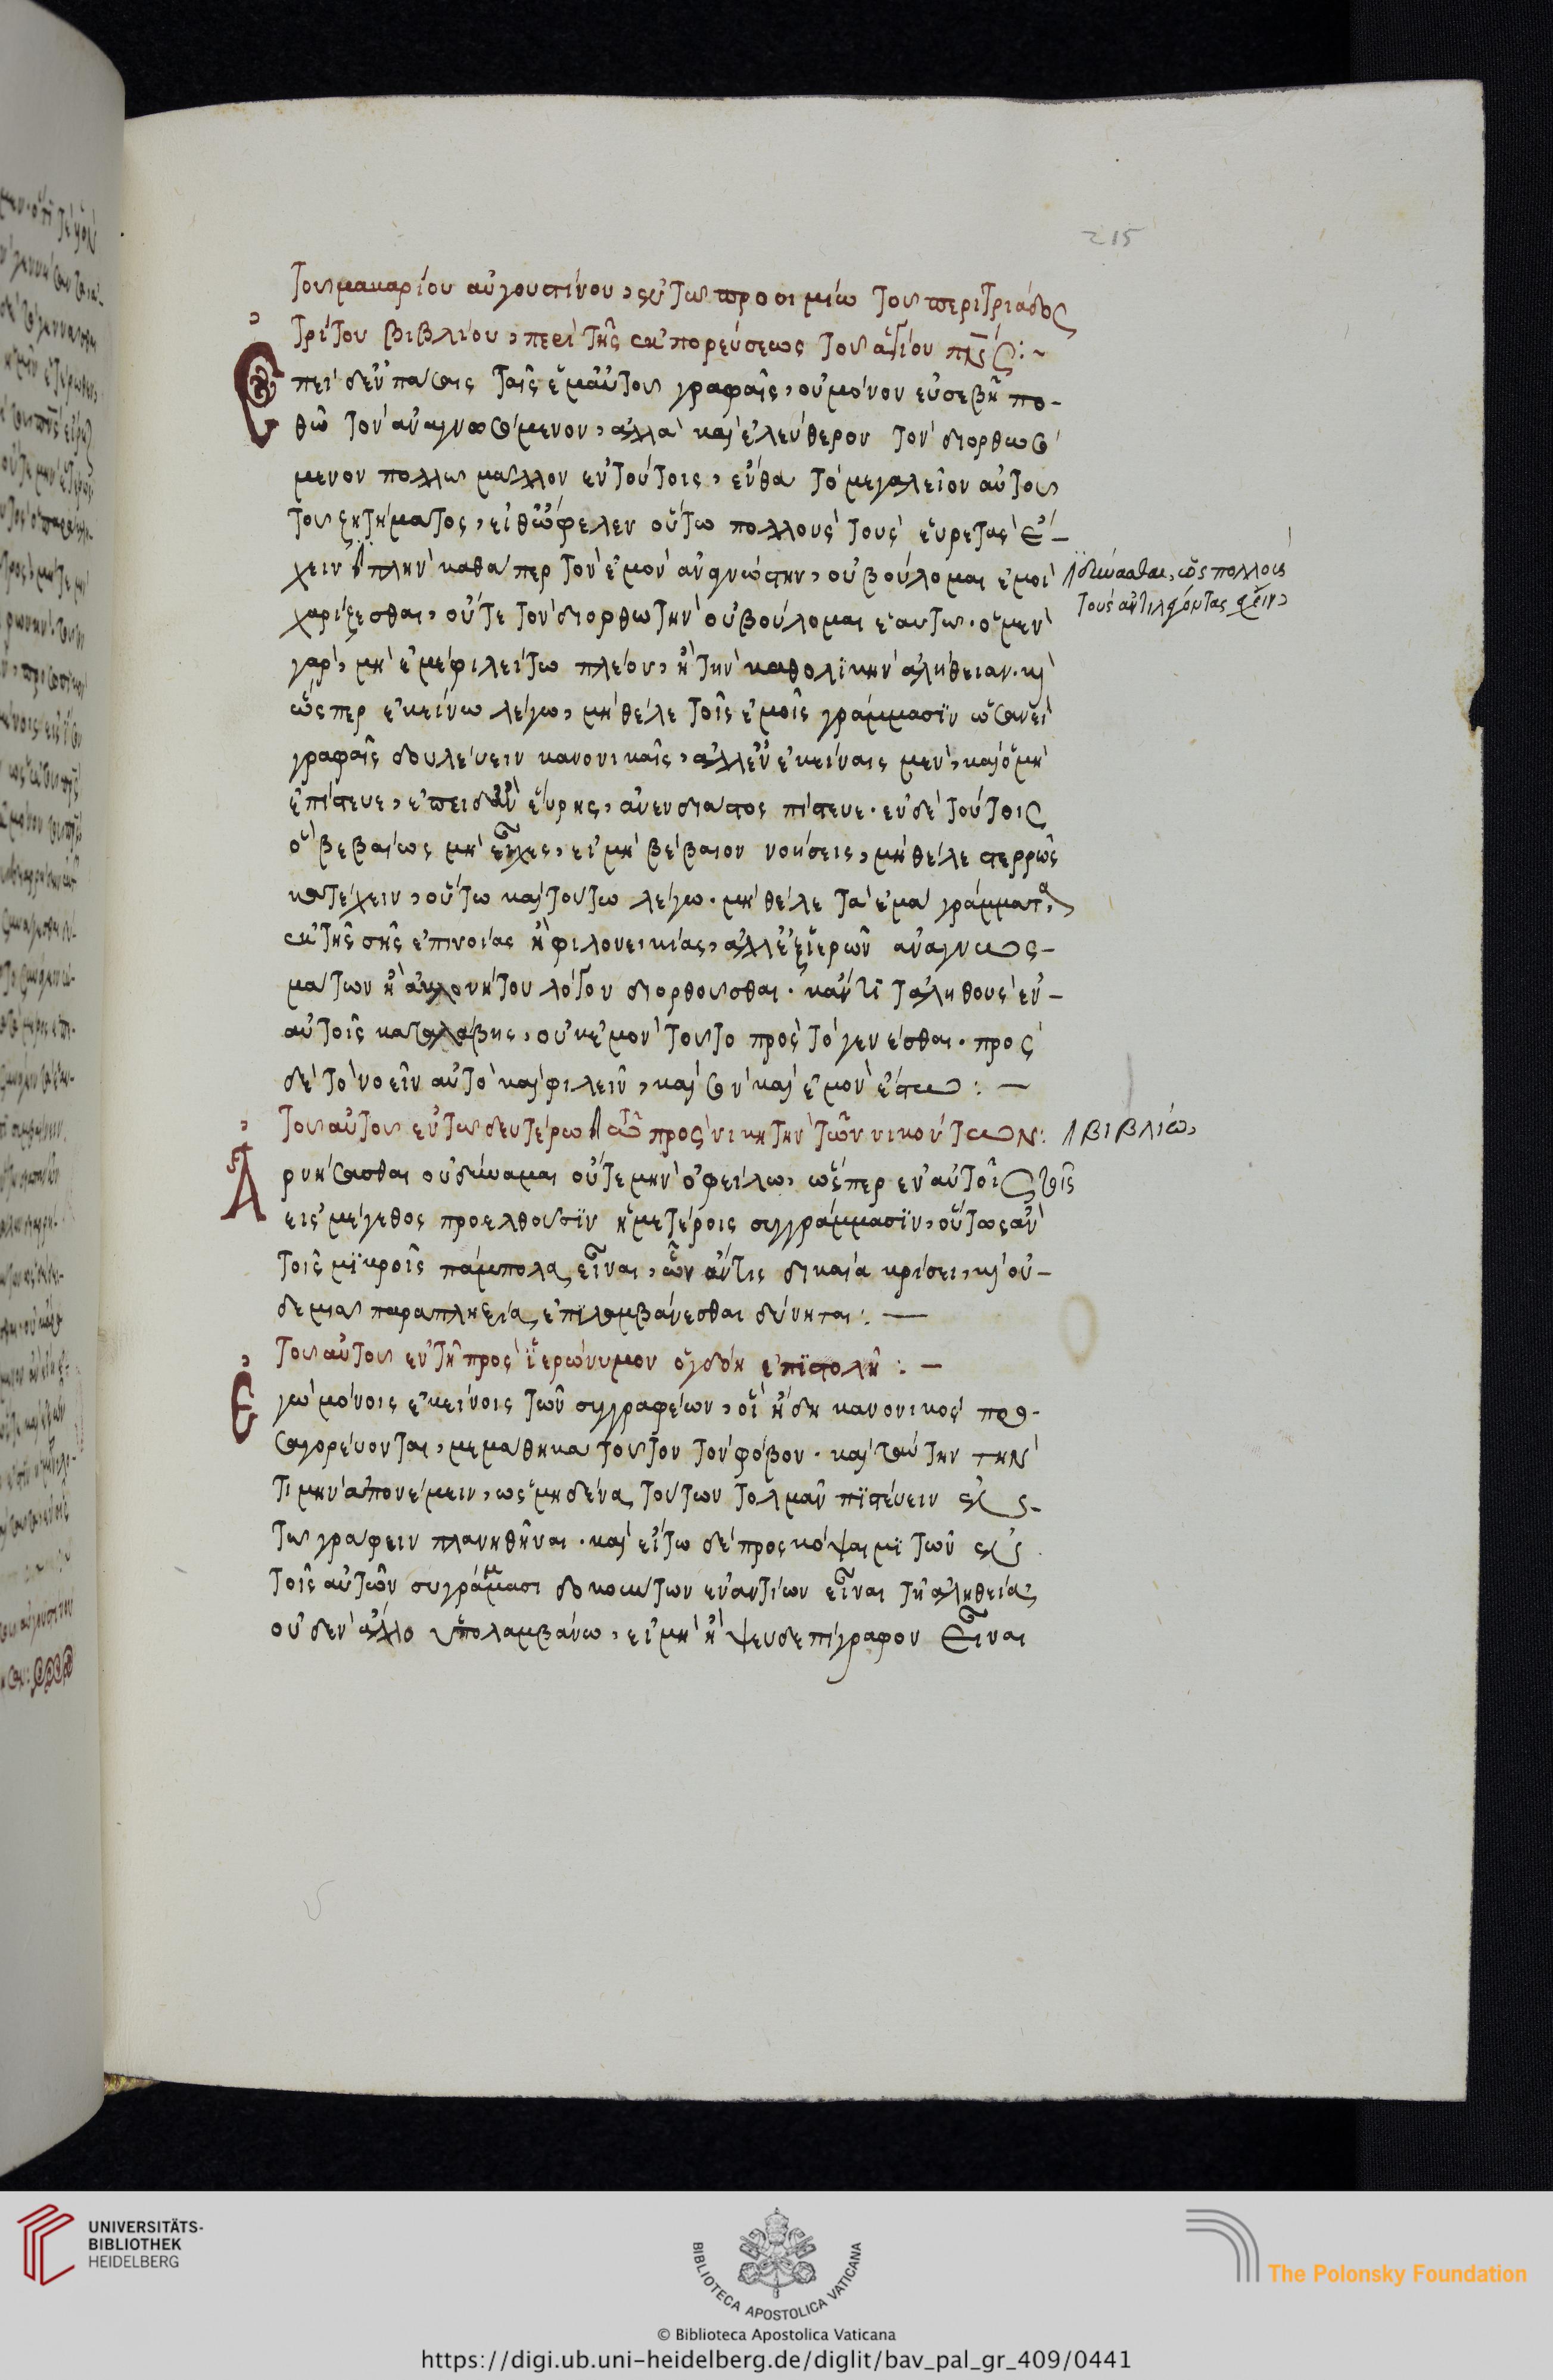 215
Τοῦ μακαρίου αὐγουστίνου, ἐν τῶ προοιμίω τοῦ περὶ τριάδος
τρίτου βιβλίου, περὶ τῆς ἐκπορεύσεως τοῦ ἁγίου πν̅ς :~
Ἐπεὶ δ' ἐν πάσαις ταῖς ἐμαυτοῦ γραφαῖς, οὐ μόνον εὐσεβῆ πο-
θῶ τὸν ἀναγνωσόμενον, ἀλλὰ καὶ ἐλεύθερον τὸν διορθωσό
μενον πολλῶ μᾶλλον ἐν τούτοις, ἔνθα τὸ μεγαλεῖον αὐτοῦ
τοῦ ζητήματος, εἴθ' ὤφελεν οὕτω πολλοὺς τοὺς εὑρετὰς ἔ-
χειν πλὴν καθάπερ τὸν ἐμὸν ἀναγνώστην, οὐ βούλομαι ἐμοὶ
δύνασθαι, ὡς πολλοὺς
τοὺς ἀντιλέγοντας ἔχειν,
χαρίζεσθαι, οὔτε τὸν διορθωτὴν οὐ βούλομαι ἑαυτῶ. ὁ μὲν
γὰρ, μὴ ἐμὲ φιλείτω πλέον, ἢ τὴν καθολικὴν ἀλήθειαν. κὶ
ὥσπερ ἐκείνω λέγω, μὴ θέλε τοῖς ἐμοῖς γράμμασϊν ὡσανεὶ
γραφαῖς δουλεύειν κανονικαῖς, ἀλλ' ἐν ἐκείναις μὲν, καὶ ὃ μὴ
ἐπίστευε, ἐπειδὰν εὕρης, ἀνενδιάστος πίστευε. ἐν δὲ τούτοις
ὃ βεβαίως μὴ εἶχες, εἰ μὴ βέβαιον νοήσεις, μὴ θέλε στερρῶς
κατέχειν, οὕτω καὶ τούτω λέγω. μὴ θέλε τὰ ἐμὰ γράμματα
ἐκ τῆς σῆς ἐπινοίας ἢ φιλονεικίας, ἀλλ' ἐξ ἱερῶν ἀναγνωσ-
μάτων ἢ ἀκλονήτου λόγου διορθοῦσθαι. κἄν τϊ τἀληθοὺς ἐν-
αὐτοῖς καταλάβης, οὐκ ἐμὸν τοῦτο πρὸς τὸ γενέσθαι. πρὸς
δὲ τὸ νοεῖν αὐτὸ καὶ φιλεῖν, καὶ σὸν καὶ ἐμὸν ἔστω : —
Τοῦ αὐτοῦ ἐν τῶ δευτέρω τῶ πρὸς νικητὴν τῶν νικούντων :
βιβλίω,
Ἀρνήσασθαι οὐ δύναμαι οὔτε μὴν ὀφείλω, ὥσπερ ἐν αὐτοῖς τοῖς
εἰς μέγεθος προελθοῦσϊν ἡμετέροις συγγράμμασϊν, οὕτως ἂν
τοῖς μϊκροῖς πάμπολα εἶναι, ὧν ἄν τις δικαία κρίσει, κὶ οὐ-
δεμιᾶ παραπληξία ἐπϊλαμβάνεσθαι δύνηται : —
Τοῦ αὐτοῦ ἐν τῆ πρὸς ἱερώνυμον ὀγδόη ἐπϊστολῆ : —
Ἐγὼ μόνοις ἐκείνοις τῶν συγγραφέων, οἳ ἤδη κανονικὸς προ-
σαγορεύονται, μεμάθηκα τοῦτον τὸν φόβον. καὶ ταύτην τὴν
τιμὴν ἀπονέμειν, ὡς μηδένα τούτων τολμᾶν πϊστεύειν ἐν-
τῶ γράφειν πλανηθῆναι. καὶ εἴ τω δὲ προσκόψαιμϊ τῶν ἐν
τοῖς αὐτῶν συγράμμασι δοκούντων ἐναντίων εἶναι τῆ ἀληθεία,
οὐδὲν ἄλλο ὑπολαμβάνω, εἰ μὴ ἢ ψευδεπίγραφον εἶναι
UNIVERSITÄTS-
BIBLIOTHEK
HEIDELBERG
BIBLIOTECA APOSTOLICA VATICANA
The Polonsky Foundation
© Biblioteca Apostolica Vaticana
https://digi.ub.uni-heidelberg.de/diglit/bav_pal_gr_409/0441